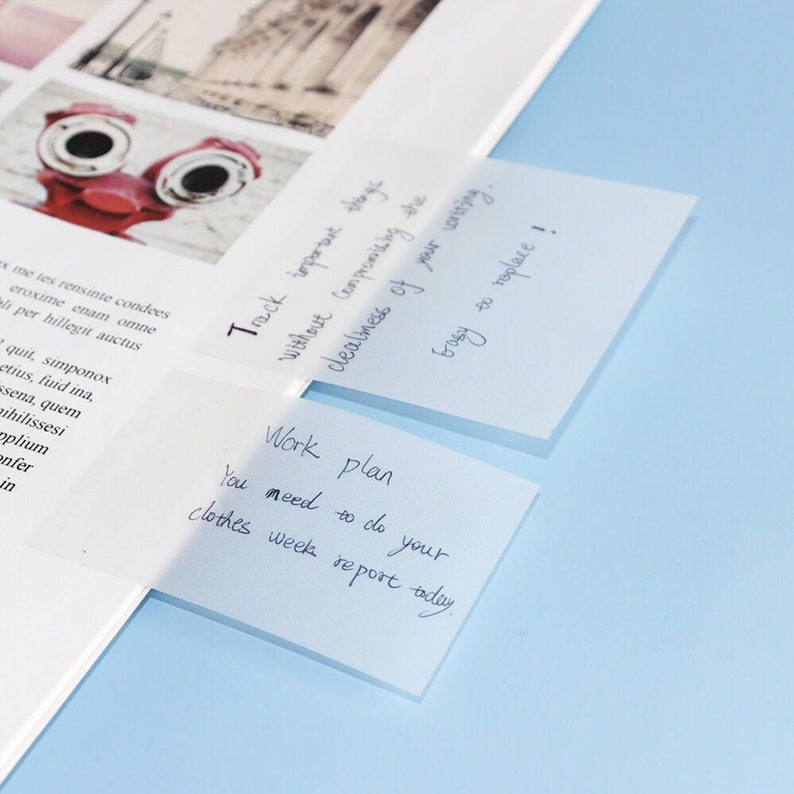 Track important things
without compromising the
cleanliness of your writing.
Easy to replace!
Work plan
You need to do your
clothes week report today.
ox me tes rensinte condees
eroxime enam omne
bli per hillegit auctus
quit, simponox
etius, fuid ina,
ssena, quem
nihilissesi
pplium
onfer
in